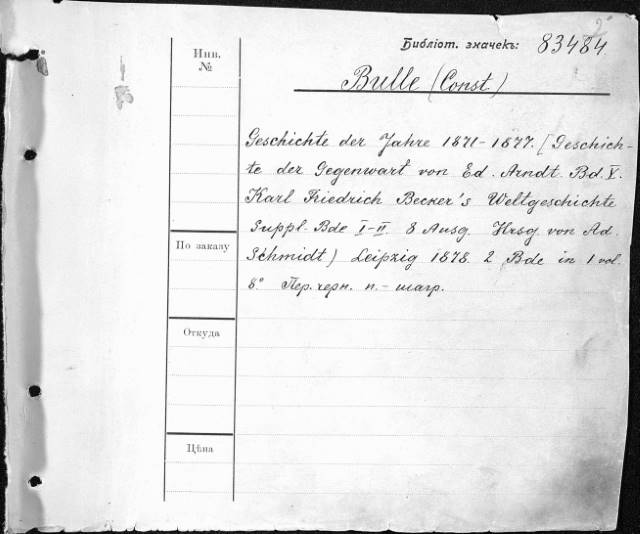 Библіот. значекъ: 83484
Инв.
№
Bulle (Const.)
Geschichte der Jahre 1871-1877. [Geschich-
te der Gegenwart von Ed. Arndt. Bd. V.
Karl Friedrich Becker's Weltgeschichte
Suppl. Bde I-II. 8 Ausg. Hrsg von Ad.
Schmidt) Leipzig 1878. 2 Bde in 1 vol.
8° Пер. черн. п.- шагр.
По заказу
Откуда
Цѣна